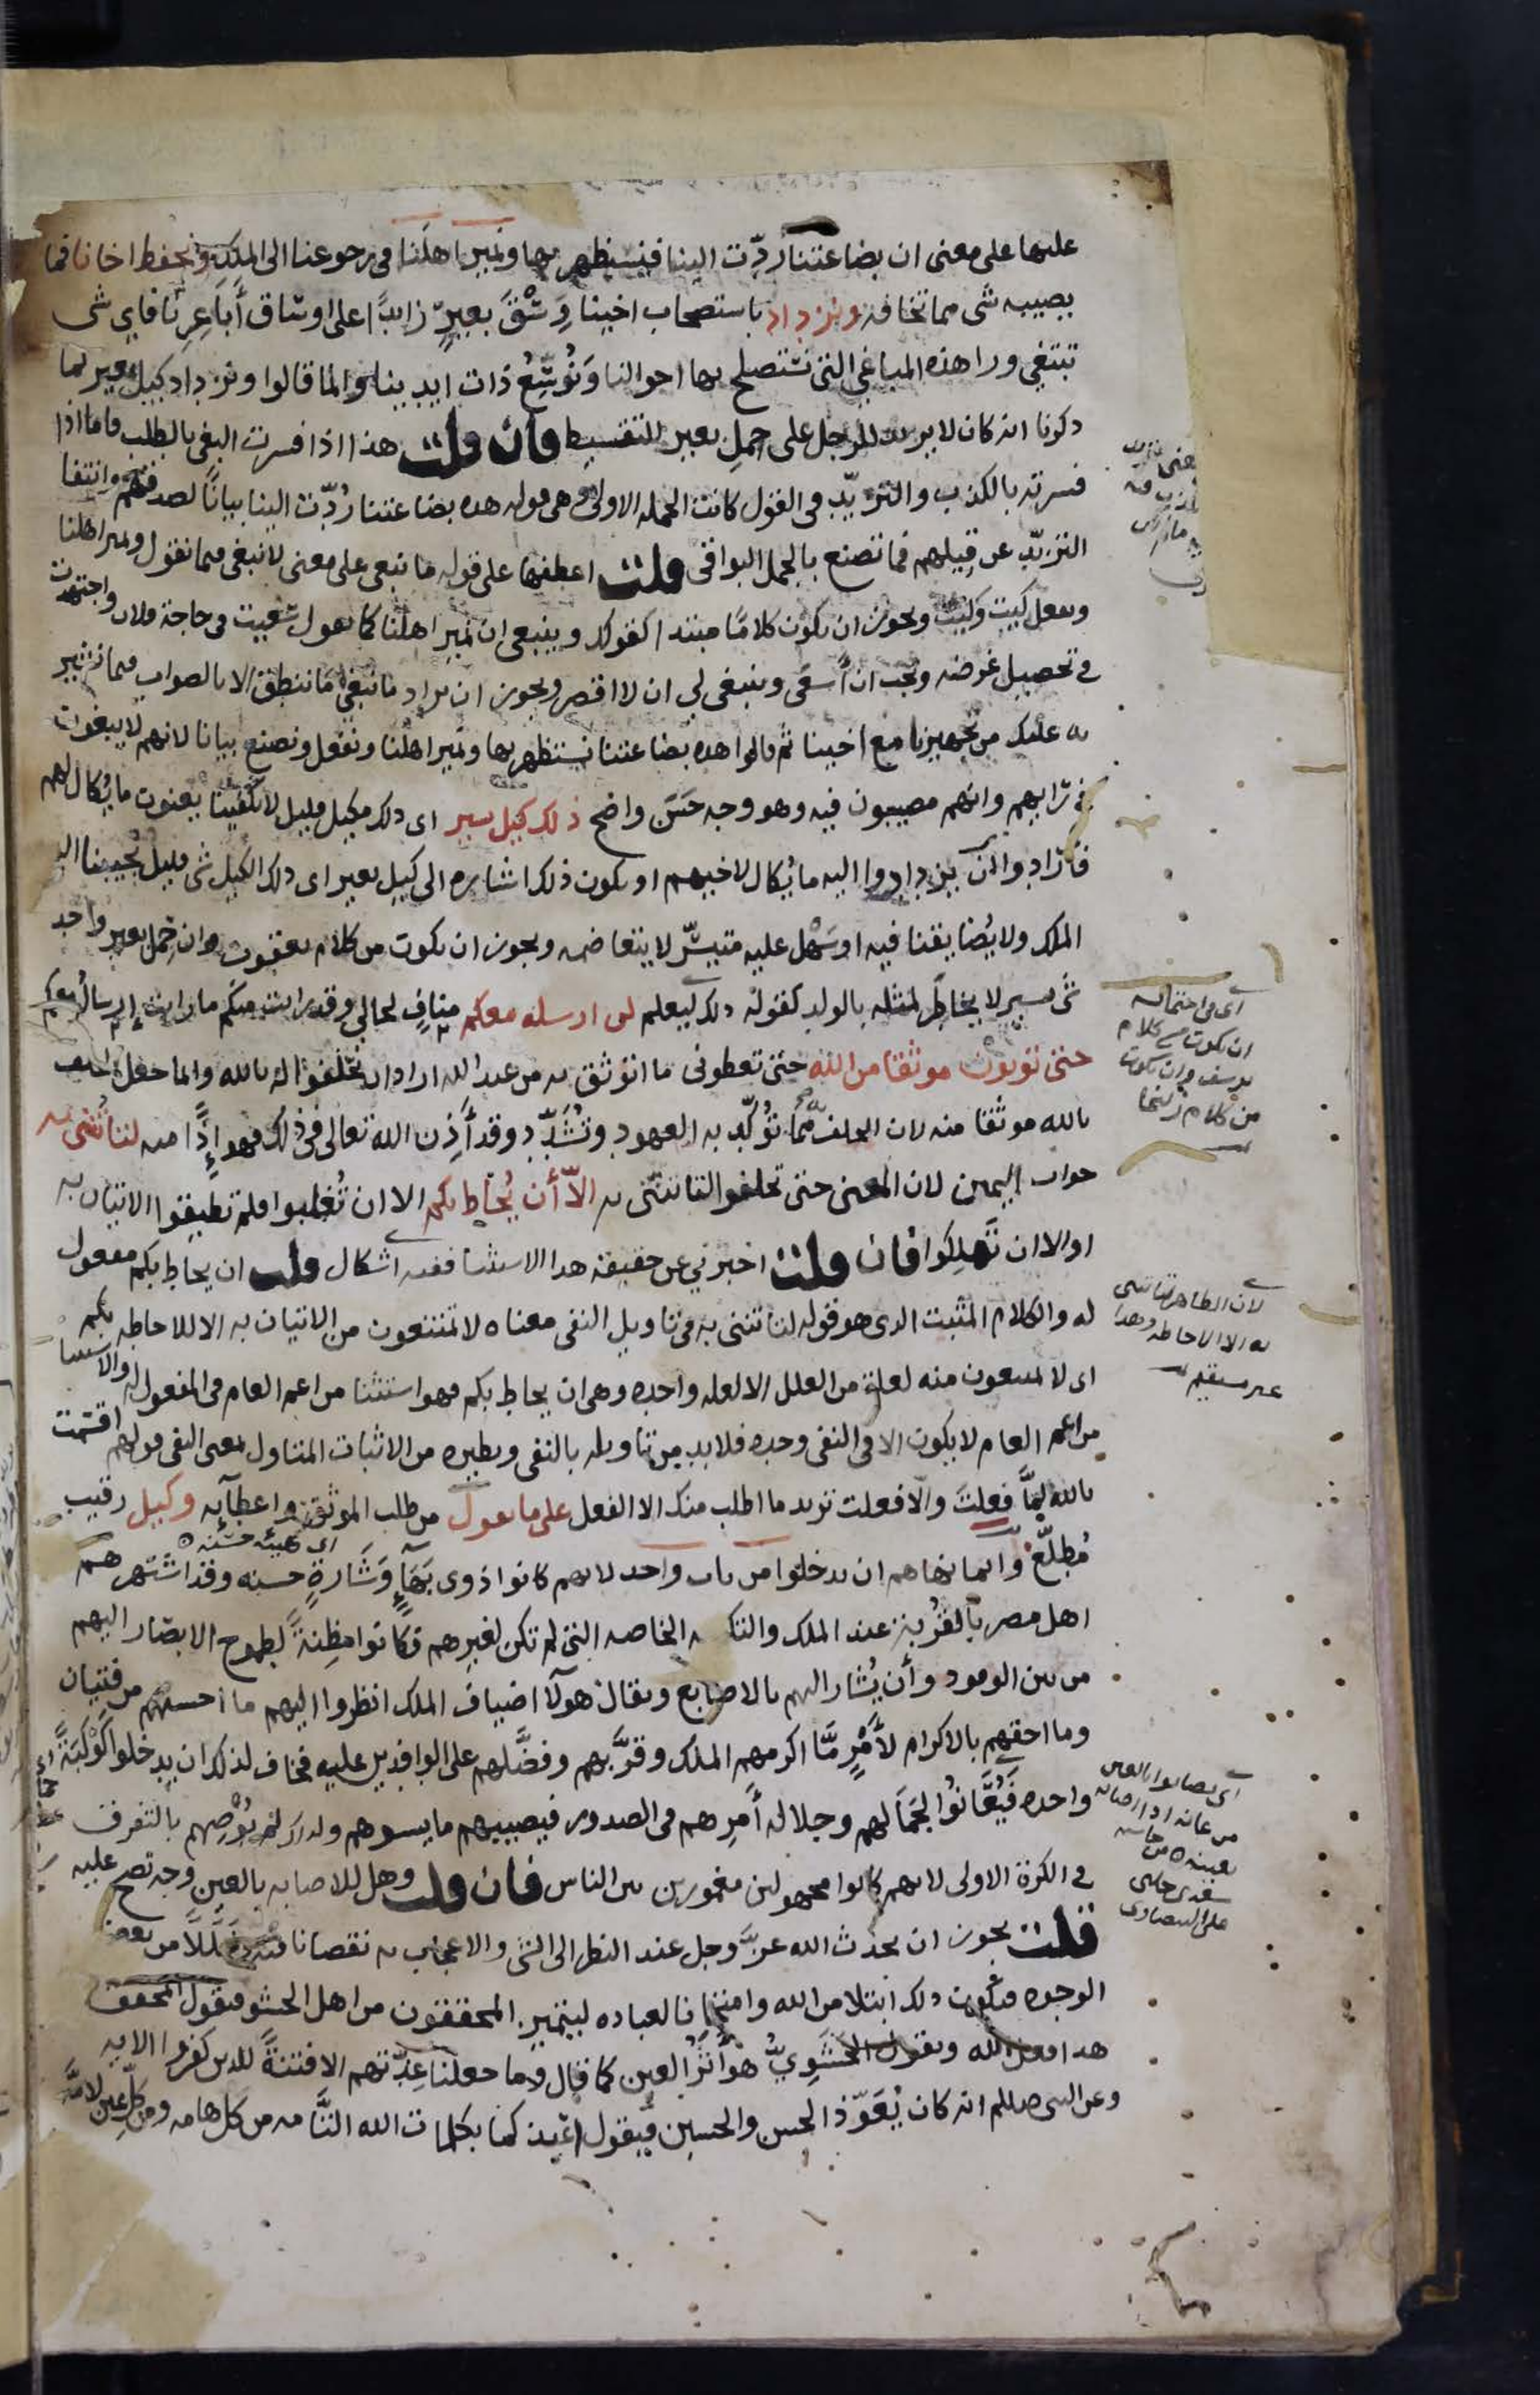 عليها على معنى ان بضاعتنا ردّت الينا فنستظهر بها ونمير اهلنا في رجوعنا الى الملك ونحفظ اخانا فما
يصيبه شى مما تخافه ونزداد باستصحاب اخينا وَسْقَ بعيرٍ زايدًا على اوساق أَباعِرِنا فاى شى
نبتغي ورا هذه المباغي التي نستصلح بها احوالنا وَنُوَسِّعُ ذات ايدينا وانما قالوا ونزداد كيل بعير لما
ذكرنا انه كان لا يزيد للرجل على حِملِ بعير للتقسيط فان قلت هذا اذا فسرت البغى بالطلب فاما اذا
فسرته بالكذب والتزيّد في القول كانت الجمله الاولى وهى قوله هذه بضاعتنا رُدّت الينا بيانًا لصدقهم وانتفا
التزيّد عن قِيلهم فما تصنع بالجمل البواقى قلت اعطفها على قوله ما نبغى على معنى لا نبغى فيما نقول ونمير اهلنا
ونفعل كيت وكيت ويجوز ان يكون كلامًا مبتدا كقولك وينبغى ان نمير اهلنا كما تقول سعيت فى حاجة فلان واجتهدت
في تحصيل غرضه ويجب ان أسعَى وينبغى لي ان لا اقصر ويجوز ان يراد ما نبغى ما ننطق الا بالصواب فيما نشير
به عليك من تجهيزنا مع اخينا ثم قالوا هذه بضاعتنا نستظهر بها ونمير اهلنا ونفعل ونصنع بيانا لانهم لا يبغون
في رايهم وانهم مصيبون فيه وهو وجه حَسَن واضح ذلك كيل يسير اى ذلك مكيل قليل لا يكفينا يعنون ما يُكال لهم
فارادوا ان يزدادوا اليه ما يُكال لاخيهم او يكون ذلك اشاره الى كيل بعير اى ذلك الكيل شى قليل يُجيبنا اليه
الملك ولا يُضايقنا فيه او سَهْل عليه متيسّر لا يتعاظمه ويجوز ان يكون من كلام يعقوب وان حِمل بعير واحد
شى يسير لا يخاطر لمثله بالولد كقوله ذلك ليعلم لن ارسله معكم منافٍ لحالي وقد رايت منكم ما رايت إرساله معكم
حتى تؤتون موثقا من الله حتى تعطونى ما اتوثق به من عند الله اراد ان يحلفوا له بالله وانما جعل الحلف
بالله موثقا منه لان الحلف به مما تُؤكّد به العهود وتُشَدّد وقد أَذِن الله تعالى فى ذلك فهو إذًا منه لتاتُنّى به
جواب اليمين لان المعنى حتى تحلفوا لتاتننّى به الاّ أن يُحاط بكم الا ان تُغلبوا فلم تطيقوا الاتيان به
او الا ان تَهلِكوا فان قلت اخبرني عن حقيقة هذا الاستثنا ففيه اشكال قلت ان يحاط بكم مفعول
له والكلام المثبت الذى هو قوله لتاتننى به فى تاويل النفى معناه لا تمتنعون من الاتيان به الا للاحاطه بكم
اى لا تمتنعون منه لعلة من العلل الا لعله واحده وهى ان يحاط بكم فهو استثنا من اعم العام فى المفعول له والاستثنا
من اعم العام لا يكون الا فى النفى وحده فلا بد من تاويله بالنفى ونظيره من الاثبات المتاول بمعنى النفى قولهم اقسمت
بالله لمَّا فعلتَ والّا فعلت تريد ما اطلب منك الا الفعل على ما نقول من طلب الموثق واعطآيه وكيل رقيب
مُطلّع وانما نهاهم ان يدخلوا من باب واحد لانهم كانوا ذوى بَهآءٍ وَشَارةٍ حسنه وقد اشتهرهم
اى هيئه حسنه
اهل مصر بالقُربة عند الملك والتكرمه الخاصه التي لم تكن لغيرهم فكانوا مظِنةً لطموح الابصار اليهم
من بين الوفود وأن يُشار اليهم بالاصابع ويقال هولآ اضياف الملك انظروا اليهم ما احسنهم من فتيان
وما احقهم بالاكرام لأَمْرٍ مّا اكرمهم الملك وقرَّبهم وفضَّلهم على الوافدين عليه فخاف لذلك ان يدخلوا كَوْكَبَةً
واحده فَيُعَانُوا لجَمَالهم وجلاله أَمرِهم فى الصدور فيصيبهم ما يسوهم ولذلك لم يُوْصِهم بالتفرق
في الكرة الاولى لانهم كانوا مجهولين مغمورين بين الناس فان قلت وهل للاصابه بالعين وجه تصح عليه
قلت يجوز ان يحدث الله عزّ وجل عند النظر الى الشى والاعجاب به نقصانا فيه وخَلَلًا من بعض
الوجوه ويكون ذلك ابتلا من الله وامتحانا لعباده ليتميز المحققون من اهل الحشو فيقول المحقق
هذا فعل الله ويقول الحَشَوِيّ هو أثر العين كما قال وما جعلنا عِدّتهم الا فتنةً للذين كفروا الايه
وعن النبى صللم انه كان يُعَوّذ الحسن والحسين فيقول اعيذكما بكلمات الله التَّامه من كل هامه ومن كل عين لامّة
اى فى احتماله
ان يكون من كلام
يوسف وان يكون
من كلام زليخا
لان الظاهر لتاتننى
به الا الاحاطه وهذا
غير مستقيم
اى يصابوا بالعين
من عانه اذا اصابه
بعينه من حاشيه
سعدى جلبى
على البيضاوى